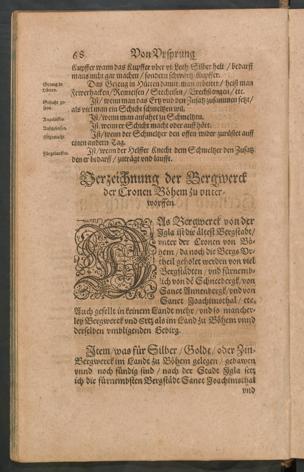 68. Von Ursprung
Kupffer wann das Kupffer über vj Loth Silber helt / bedarff
mans nicht gar machen / sondern schwartz Kupffer.
Das Gezeug in Hütten damit man arbeitet / heist man
Fewerhacken / Renneisen / Stecheisen / Brechstangen / etc.
Ist / wenn man das Ertz und den Zusatz zusammen setzt /
als viel man ein Schicht schmeltzen wil.
Ist / wenn man anfahet zu Schmeltzen.
Ist wenn er Schicht macht oder auffhört.
Ist / wenn der Schmeltzer den offen wider zurüstet auff
einen andern Tag.
Ist / wenn der Helffer Knecht dem Schmeltzer den Zusatz
den er bedarff / zuträgt und laufft.
Verzeichnung der Bergwerck
der Cronen Böhem zu unter-
worffen.
DAs Bergwerck von der
Igla ist die ältest Bergstadt /
unter der Cronen von Bö-
hem / da noch die Bergs Ur-
theil geholet werden von viel
Bergstädten / und fürnemb-
lich von dē Schneebergk / von
Sanct Annenbergk / und von
Sanct Joachimsthal / etc.
Auch gesellt in keinem Land mehr / und so mancher-
ley Bergwerck und Ertz als im Land zu Böhem unnd
derselben umbligenden Gebirg.
Item / was für Silber / Golde / oder Zin-
Bergwerck im Landt zu Böhem gelegen / gebawen
unnd noch fündig sind / nach der Stadt Igla setz
ich die fürnembsten Bergstädt Sanct Joachimsthal
und